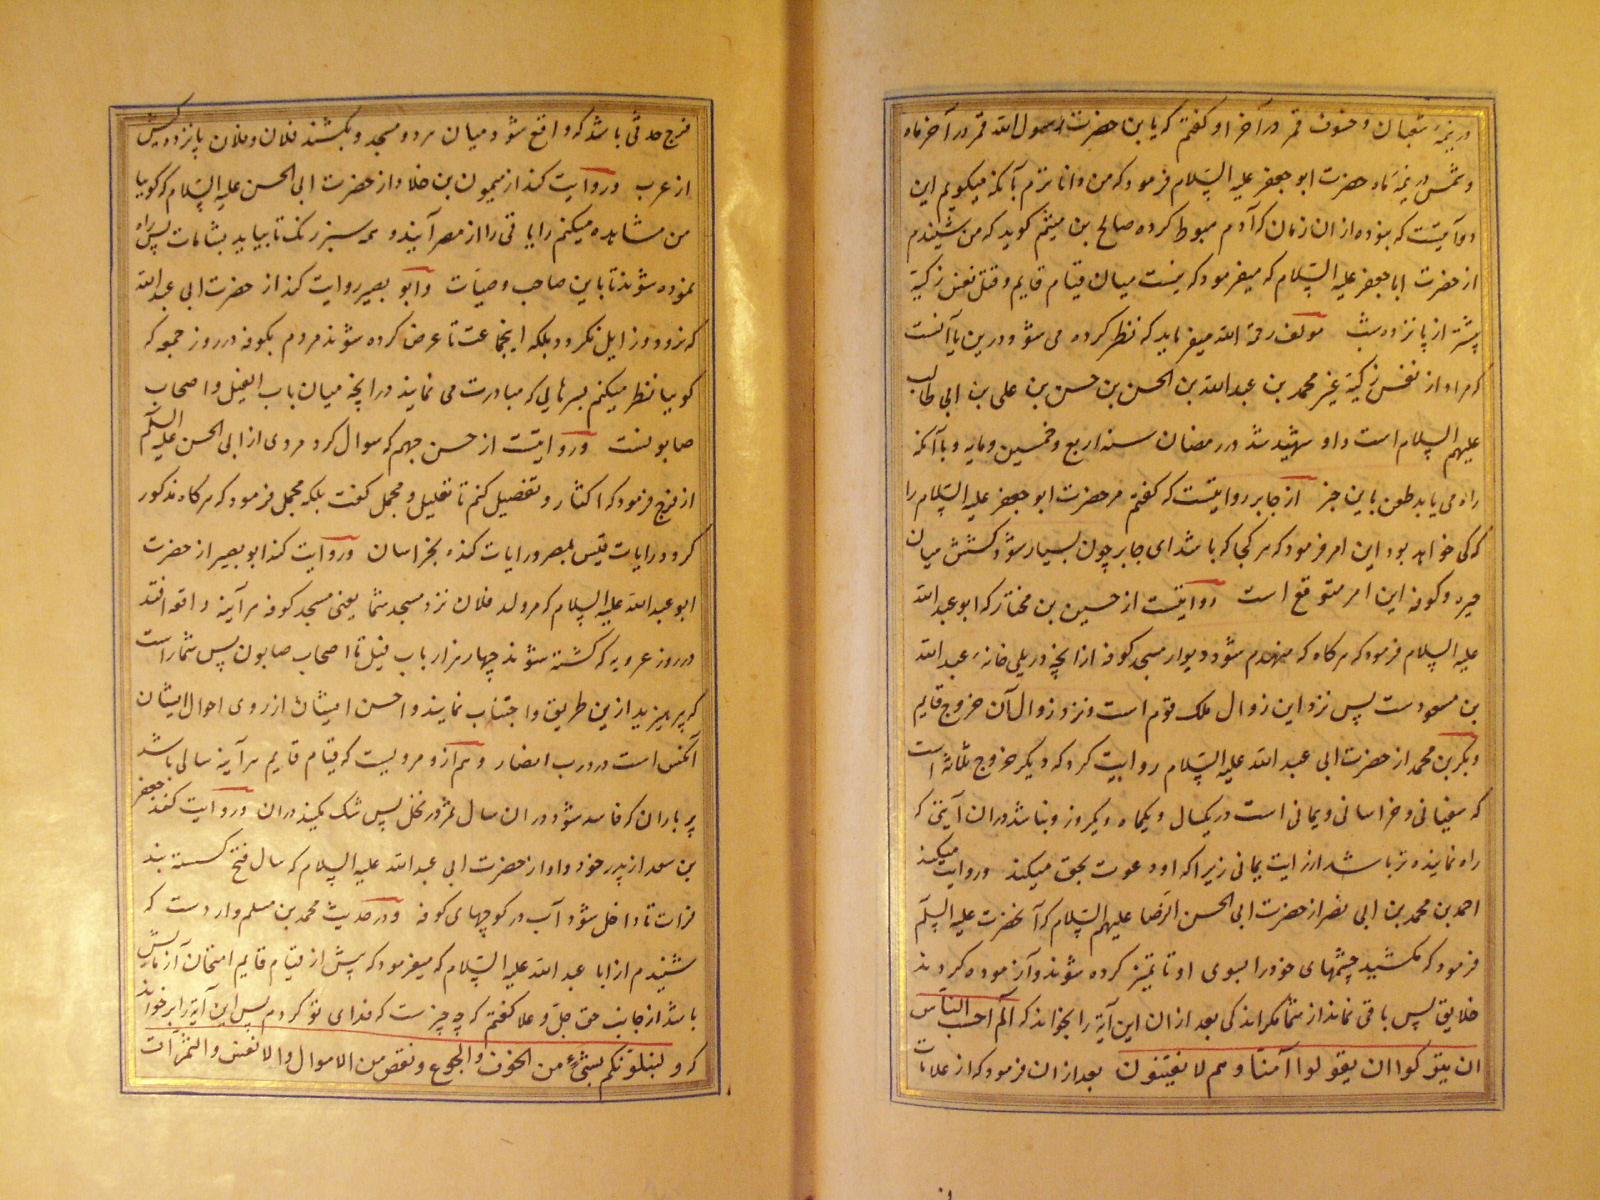 در نیمهٔ شعبان و خسوف قمر در آخر او گفتم که یا بن حضرت رسول الله قمر در آخر ماه
و شمس در نیمهٔ ماه حضرت ابو جعفر علیه السلام فرمود که من داناترم بآنکه میگویم این
دو آیتست که نبوده از ان زمان که آدم هبوط کرده صالح بن میثم گوید که من شنیدم
از حضرت ابا جعفر علیه السلام که میفرمود که نیست میان قیام قایم و قتل نفس زکیة
بیشتر از پانزده شب مولف رحمة الله میفرماید که نظر کرده می شود درین یا آنست
که مراد از نفس زکیة غیر محمد بن عبدالله بن الحسن بن حسن بن علی بن ابی طالب
علیهم السلام است و او شهید شد در رمضان سنه اربع و خمسین و مایه و یا آنکه
راه می یابد طعن باین خبر از جابر روایتست که گفتم مر حضرت ابو جعفر علیه السلام را
که کی خواهد بود این امر فرمود که هر کجا که باشد ای جابر چون بسیار شود کشش میان
حیره و کوفه این امر متوقع است روایتست از حسین بن مختار که ابو عبدالله
علیه السلام فرمود که هرگاه که منهدم شود دیوار مسجد کوفه از انچه در پلی خانهٔ عبدالله
بن مسعودست پس نزد این زوال ملک قوم است و نزد زوال آن خروج قایم
و بکر بن محمد از حضرت ابی عبدالله علیه السلام روایت کرد که دیگر خروج ثلاثه است
که سفیانی و خراسانی و یمانی است در یکسال و یکماه و یکروز و نباشد در ان آیتی که
راه نماینده تر باشد از رایت یمانی زیرا که او دعوت بحق میکند و روایت میکند
احمد بن محمد بن ابی نصر از حضرت ابی الحسن الرضا علیهم السلام که آنحضرت علیه السلم
فرمود که مکشید چشمهای خود را بسوی او تا تمیز کرده شوند و آزموده گردند
خلایق پس باقی نماند از شما مگر اندکی بعد از ان این آیة را بخواند که الم احسب الناس
ان یترکوا ان یقولوا آمنا و هم لا یفتنون بعد از ان فرمود که از علامات
فرج حدثی باشد که واقع شود میان مردو مسجد و بکشند فلان و فلان پانزده کبش
از عرب و روایت کند از میمون بن خلاد از حضرت ابی الحسن علیه السلام که گوییا
من مشاهده میکنم رایاتی را از مصر آیند و همه سبز رنک تا بیاید بشامات پس راه
نموده شوند تا باین صاحب وصیات و ابو بصیر روایت کند از حضرت ابی عبدالله
که نزود و زایل نکرود بلکه اینجماعت تا عرض کرده شوند مردم بکوفه در روز جمعه که
گوییا نظر میکنم بسرهایی که مبادرت می نمایند در انچه میان باب الفیل و اصحاب
صابونست و روایتست از حسن جهم که سوال کرد مردی از ابی الحسن علیه السلم
از فرج فرمود که اکثار و تفضیل کنم تا تقلیل و مجمل گفت بلکه مجمل فرمود که هرگاه مذکور
کرود رایات قیس بمصر و رایات کنده بخراسان و روایت کند ابو بصیر از حضرت
ابو عبدالله علیه السلام که مر ولد فلان نزد مسجد شما یعنی مسجد کوفه هر آینه واقعه افتد
در روز عروبه که کشته شوند چهار هزار باب فیل تا اصحاب صابون پس شما راست
که پرهیزید ازین طریق و اجتناب نمایند و احسن ایشان از روی احوال ایشان
آنکس است در درب انصار و هم از و مرویست که قیام قایم هر آینه سالی باشد
پر باران که فاسد شود در ان سال ثمر در نخل پس شک مکنید در ان و روایت کند جعفر
بن سعد از پدر خود و او از حضرت ابی عبدالله علیه السلام که سال فتح کسسته بند
فرات تا داخل شود آب در کوچهای کوفه و در حدیث محمد بن مسلم واردست که
شنیدم از ابا عبدالله علیه السلام که میفرمود که پیش از قیام قایم امتحان آزمایش
باشد از جانب حق جل و علا گفتم که چه چیزست که فدای تو کردم پس این آیة را بر خواند
که و لنبلونکم بشیءٍ من الخوف و الجوع و نقص من الاموال و الانفس و الثمرات